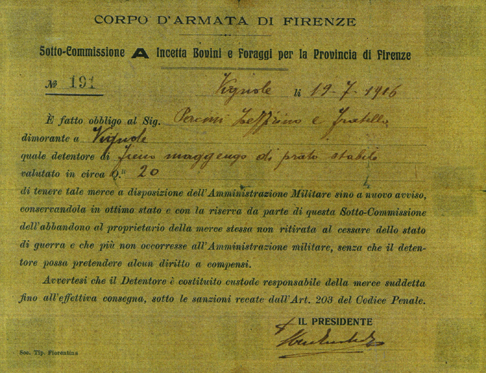 CORPO D'ARMATA DI FIRENZE
Sotto-Commissione A Incetta Bovini e Foraggi per la Provincia di Firenze
№ 191
Vignole li 19-7-1916
È fatto obbligo al Sig. Zeffirino e Fratelli
dimorante a Vignole
quale detentore di fieno maggengo di prato stabile
valutato in circa Q.li 20
di tenere tale merce a disposizione dell'Amministrazione Militare sino a nuovo avviso,
conservandola in ottimo stato e con la riserva da parte di questa Sotto-Commissione
dell'abbandono al proprietario della merce stessa non ritirata al cessare dello stato
di guerra e che più non occorresse all'Amministrazione militare, senza che il deten-
tore possa pretendere alcun diritto a compensi.
Avvertesi che il Detentore è costituito custode responsabile della merce suddetta
fino all'effettiva consegna, sotto le sanzioni recate dall'Art. 203 del Codice Penale.
IL PRESIDENTE
Soc. Tip. Fiorentina